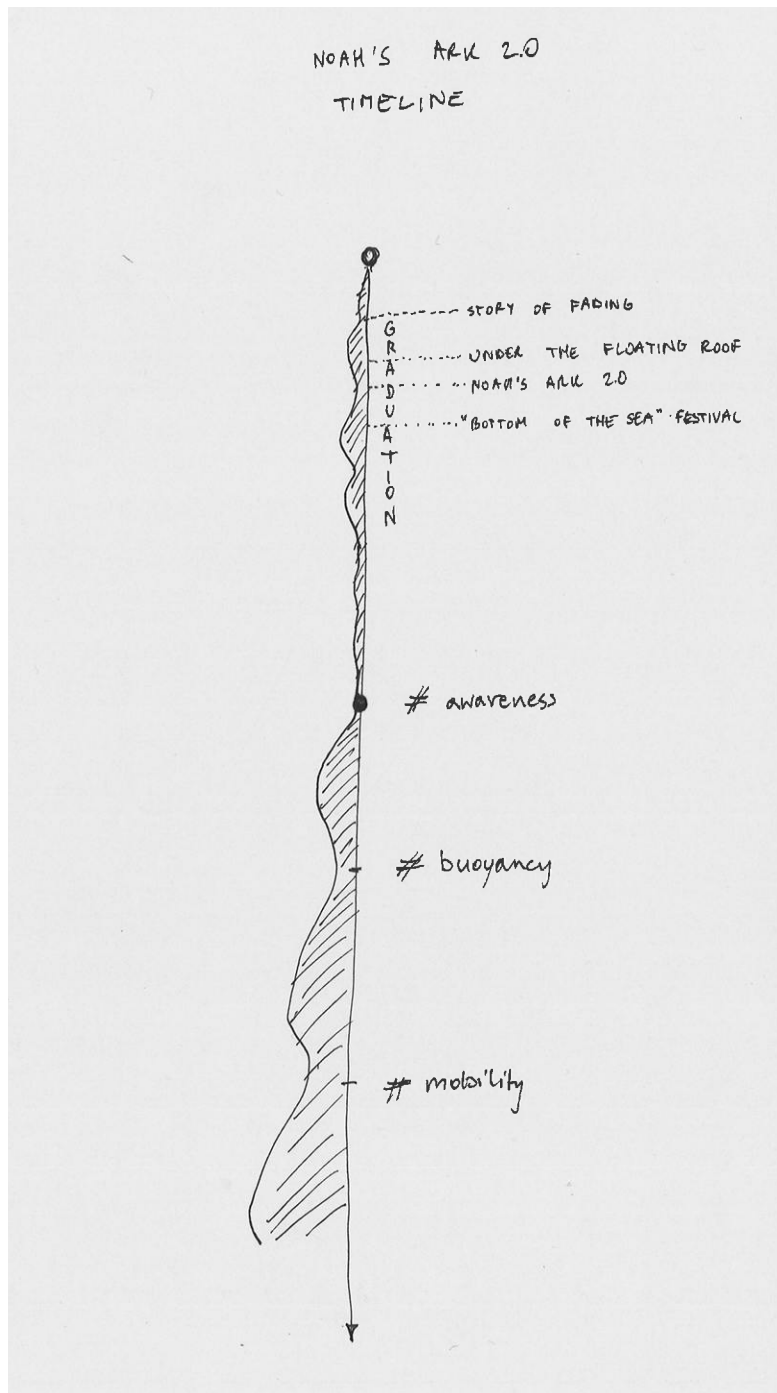 NOAH'S ARK 2.0
TIMELINE
STORY OF FADING
GRADUATION
UNDER THE FLOATING ROOF
NOAH'S ARK 2.0
"BOTTOM OF THE SEA" FESTIVAL
# awareness
# buoyancy
# mobility